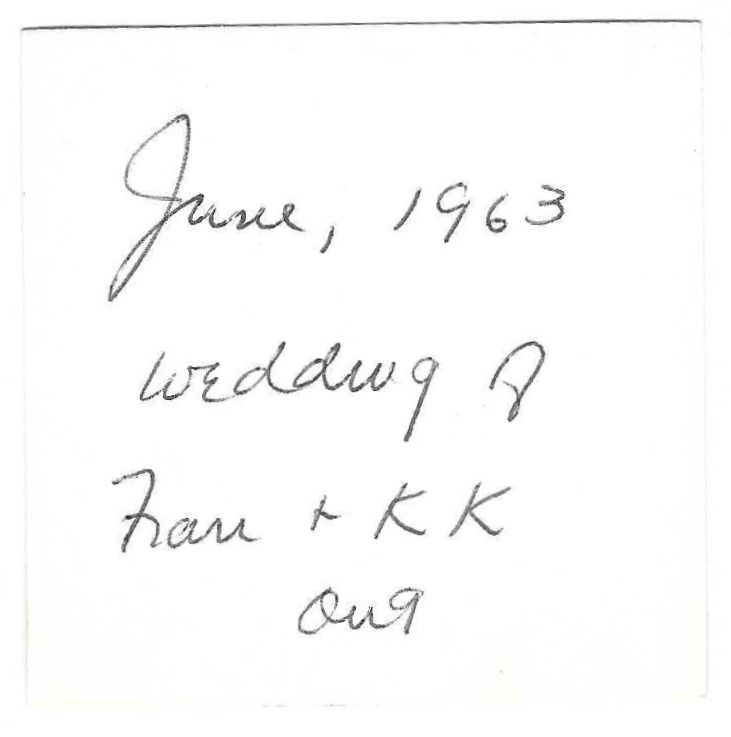 June, 1963
wedding of
Fran + KK
Ong